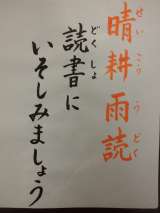 晴耕雨読
せいこううどく
読書に
どくしょ
いそしみましょう